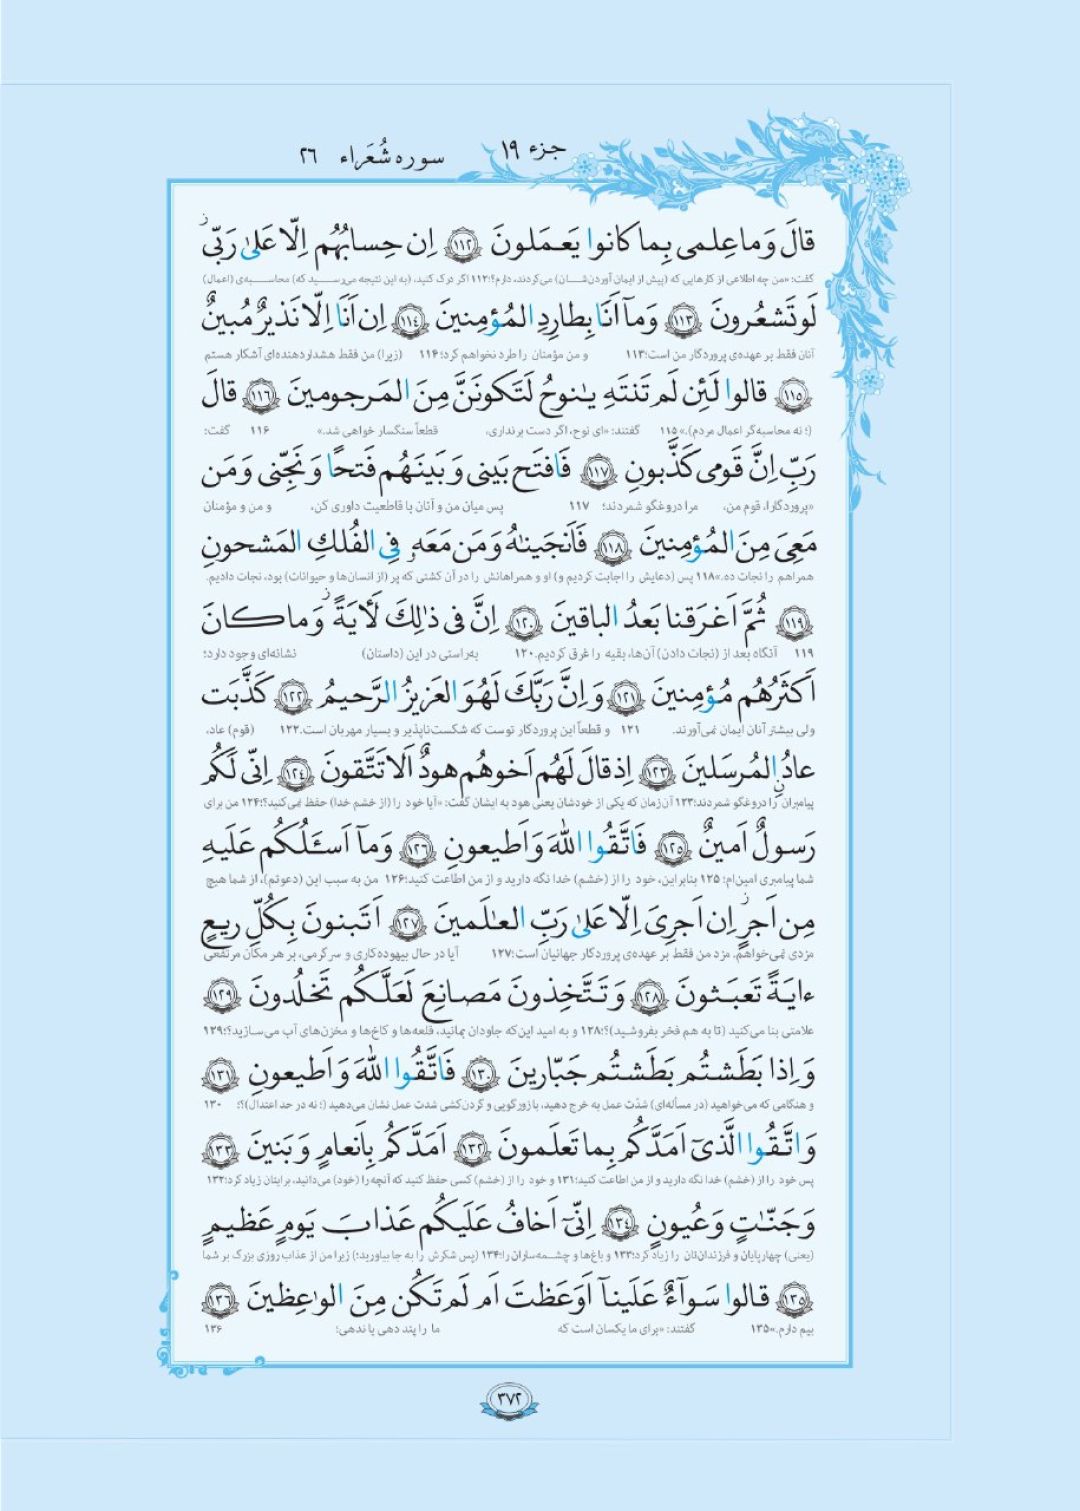 جزء ۱۹
سوره شُعَراء ۲۶
قالَ وَ ما عِلمی بِما کانوا یَعمَلونَ ﴿۱۱۲﴾ اِن حِسابُهُم اِلّا عَلیٰ رَبّی ز
گفت: «من چه اطلاعی از کارهایی که (پیش از ایمان آوردن‌شان) می‌کردند، دارم؟! ۱۱۲ اگر درک کنید، (به این نتیجه می‌رسید که) محاسبه‌ی (اعمال)
لَو تَشعُرونَ ﴿۱۱۳﴾ وَ مآ اَنَا بِطارِدِ المُؤمِنینَ ﴿۱۱٤﴾ اِن اَنَا اِلّا نَذیرٌ مُبینٌ
آنان فقط بر عهده‌ی پروردگار من است؛ ۱۱۳ و من مؤمنان را طرد نخواهم کرد؛ ۱۱۴ (زیرا) من فقط هشداردهنده‌ای آشکار هستم
﴿۱۱٥﴾ قالوا لَئِن لَم تَنتَهِ یـٰنوحُ لَتَکونَنَّ مِنَ المَرجومینَ ﴿۱۱٦﴾ قالَ
(؛ نه محاسبه‌گر اعمال مردم).» ۱۱۵ گفتند: «ای نوح، اگر دست برنداری، قطعاً سنگسار خواهی شد.» ۱۱۶ گفت:
رَبِّ اِنَّ قَومی کَذَّبونِ ﴿۱۱۷﴾ فَافتَح بَینی وَ بَینَهُم فَتحًا وَ نَجِّنی وَ مَن
«پروردگارا، قوم من، مرا دروغگو شمردند؛ ۱۱۷ پس میان من و آنان با قاطعیت داوری کن، و من و مؤمنان
مَعِیَ مِنَ المُؤمِنینَ ﴿۱۱۸﴾ فَاَنجَینـٰهُ وَ مَن مَعَه فِی الفُلکِ المَشحونِ
همراهم را نجات ده.» ۱۱۸ پس (دعایش را اجابت کردیم و) او و همراهانش را در آن کشتی که پر (از انسان‌ها و حیوانات) بود، نجات دادیم.
﴿۱۱۹﴾ ثُمَّ اَغرَقنا بَعدُ الباقینَ ﴿۱۲۰﴾ اِنَّ فی ذٰلِکَ لَـٔایَةً ز وَ ما کانَ
۱۱۹ آنگاه بعد از (نجات دادن) آن‌ها، بقیه را غرق کردیم. ۱۲۰ به‌راستی در این (داستان) نشانه‌ای وجود دارد؛
اَکثَرُهُم مُؤمِنینَ ﴿۱۲۱﴾ وَ اِنَّ رَبَّکَ لَهُوَ العَزیزُ الرَّحیمُ ﴿۱۲۲﴾ کَذَّبَت
ولی بیشتر آنان ایمان نمی‌آورند. ۱۲۱ و قطعاً این پروردگار توست که شکست‌ناپذیر و بسیار مهربان است. ۱۲۲ (قوم) عاد،
عادُنِ المُرسَلینَ ﴿۱۲۳﴾ اِذ قالَ لَهُم اَخوهُم هودٌ اَلا تَتَّقونَ ﴿۱۲٤﴾ اِنّی لَکُم
پیامبران را دروغگو شمردند؛ ۱۲۳ آن زمان که یکی از خودشان یعنی هود به ایشان گفت: «آیا خود را (از خشم خدا) حفظ نمی‌کنید؟! ۱۲۴ من برای
رَسولٌ اَمینٌ ﴿۱۲٥﴾ فَاتَّقُوا اللهَ وَ اَطیعونِ ﴿۱۲٦﴾ وَ مآ اَسئَلُکُم عَلَیهِ
شما پیامبری امین‌ام؛ ۱۲۵ بنابراین، خود را از (خشم) خدا نگه دارید و از من اطاعت کنید؛ ۱۲۶ من به سبب این (دعوتم)، از شما هیچ
مِن اَجرٍ ز اِن اَجرِیَ اِلّا عَلیٰ رَبِّ العـٰلَمینَ ﴿۱۲۷﴾ اَتَبنونَ بِکُلِّ ریعٍ
مزدی نمی‌خواهم. مزد من فقط بر عهده‌ی پروردگار جهانیان است؛ ۱۲۷ آیا در حال بیهوده‌کاری و سرگرمی، بر هر مکان مرتفعی
ءایَةً تَعبَثونَ ﴿۱۲۸﴾ وَ تَتَّخِذونَ مَصانِعَ لَعَلَّکُم تَخلُدونَ ﴿۱۲۹﴾
علامتی بنا می‌کنید (تا به هم فخر بفروشید)؟! ۱۲۸ و به امید این‌که جاودان بمانید، قلعه‌ها و کاخ‌ها و مخزن‌های آب می‌سازید؟! ۱۲۹
وَ اِذا بَطَشتُم بَطَشتُم جَبّارینَ ﴿۱۳۰﴾ فَاتَّقُوا اللهَ وَ اَطیعونِ ﴿۱۳۱﴾
و هنگامی که می‌خواهید (در مسأله‌ای) شدّت عمل به خرج دهید، با زورگویی و گردن‌کشی شدت عمل نشان می‌دهید (؛ نه در حد اعتدال)؟! ۱۳۰
وَ اتَّقُوا الَّذیٓ اَمَدَّکُم بِما تَعلَمونَ ﴿۱۳۲﴾ اَمَدَّکُم بِاَنعامٍ وَ بَنینَ ﴿۱۳۳﴾
پس خود را از (خشم) خدا نگه دارید و از من اطاعت کنید؛ ۱۳۱ و خود را از (خشم) کسی حفظ کنید که آنچه را (خود) می‌دانید، برایتان زیاد کرد؛ ۱۳۲
وَ جَنّـٰتٍ وَ عُیونٍ ﴿۱۳٤﴾ اِنّیٓ اَخافُ عَلَیکُم عَذابَ یَومٍ عَظیمٍ
(یعنی) چهارپایان و فرزندان‌تان را زیاد کرد؛ ۱۳۳ و باغ‌ها و چشمه‌ساران را؛ ۱۳۴ (پس شکرش را به جا بیاورید؛) زیرا من از عذاب روزی بزرگ بر شما
﴿۱۳٥﴾ قالوا سَوآءٌ عَلَینآ اَوَعَظتَ اَم لَم تَکُن مِنَ الوٰعِظینَ ﴿۱۳٦﴾
بیم دارم.» ۱۳۵ گفتند: «برای ما یکسان است که ما را پند دهی یا ندهی؛ ۱۳۶
۳۷۲